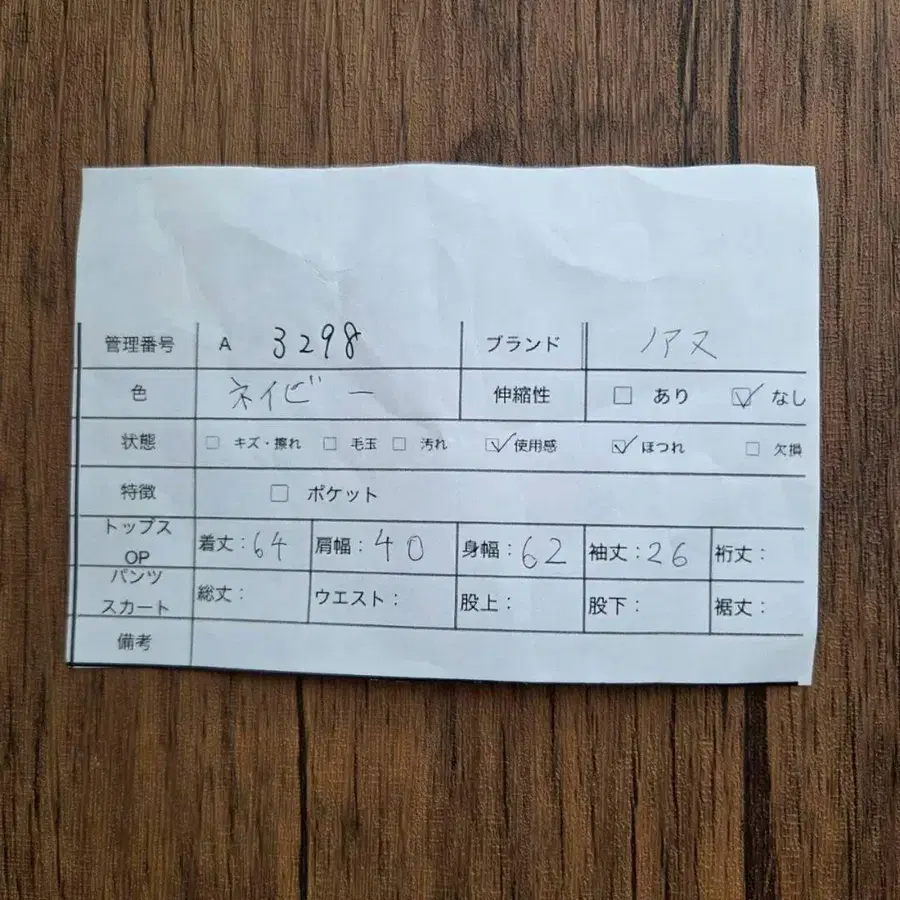 管理番号 A 3298 ブランド ノアヌ
色 ネイビー 伸縮性 □ あり ☑ なし
状態 □ キズ・擦れ □ 毛玉 □ 汚れ ☑ 使用感 ☑ ほつれ □ 欠損
特徴 □ ポケット
トップス OP 着丈:64 肩幅:40 身幅:62 袖丈:26 裄丈:
パンツ スカート 総丈: ウエスト: 股上: 股下: 裾丈:
備考